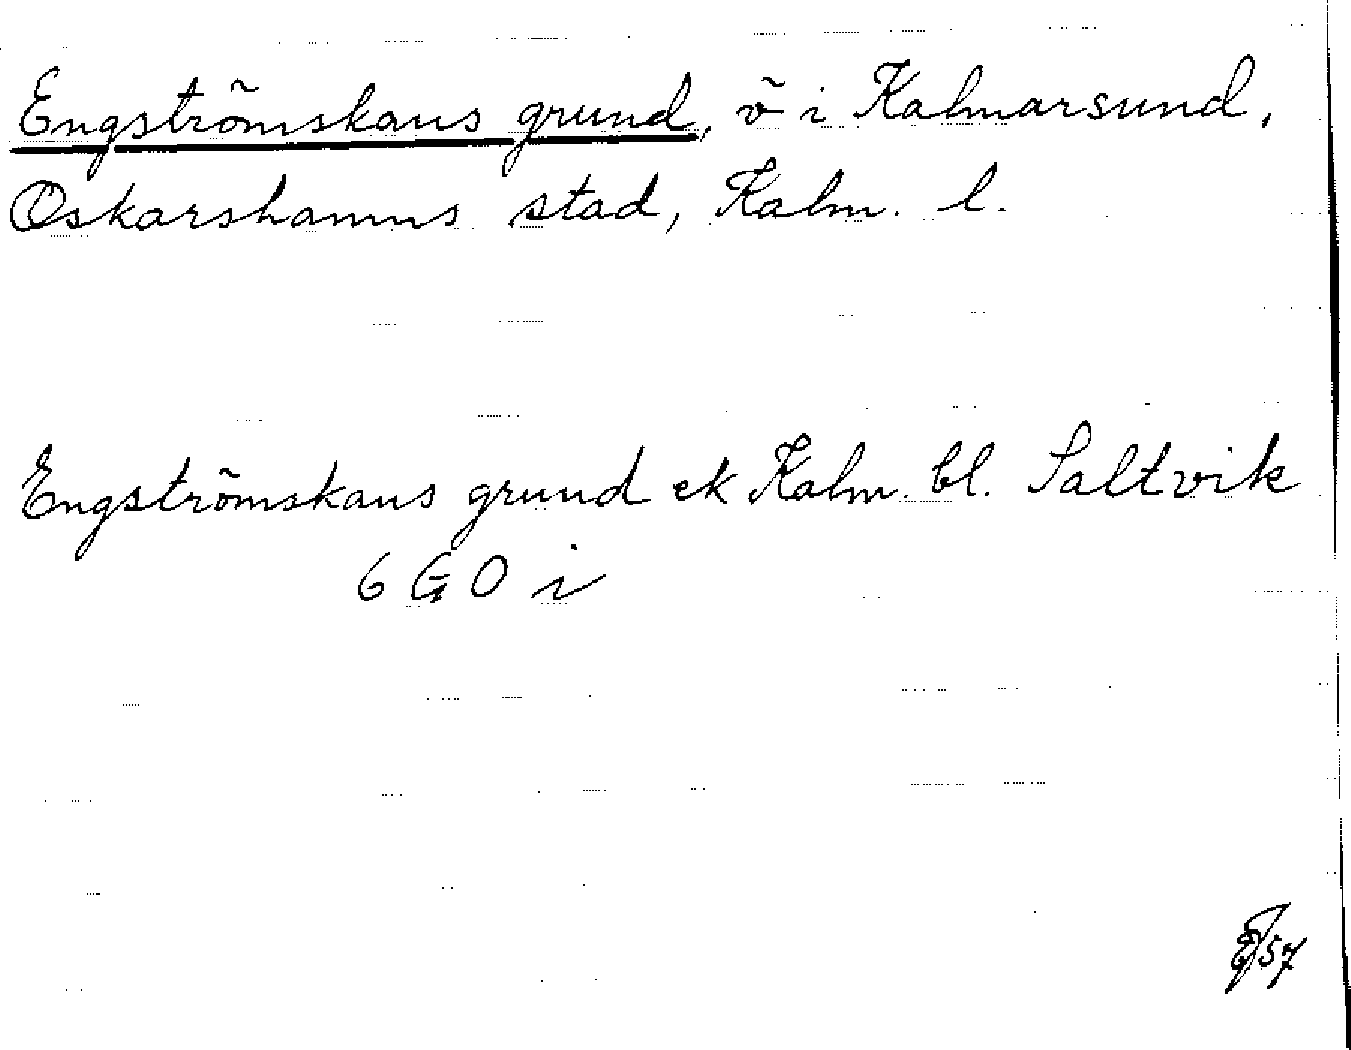 Engströmskans grund, ö i Kalmarsund,
Oskarshamns stad, Kalm. l.
Engströmskans grund ek Kalm. bl. Saltvik
6 G 0 i
57